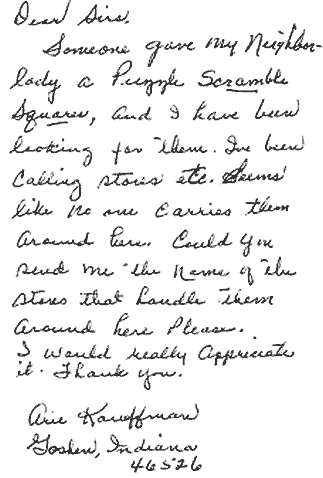 Dear Sirs,
Someone gave my Neighbor-
lady a Puzzle Scramble
Squares, and I have been
looking for them. I've been
Calling stores etc. Seems
like no one Carries them
around here. Could you
send me the Name of the
stores that handle them
around here Please.
I would really Appreciate
it. Thank you.
Arie Kauffman
Goshen, Indiana
46526